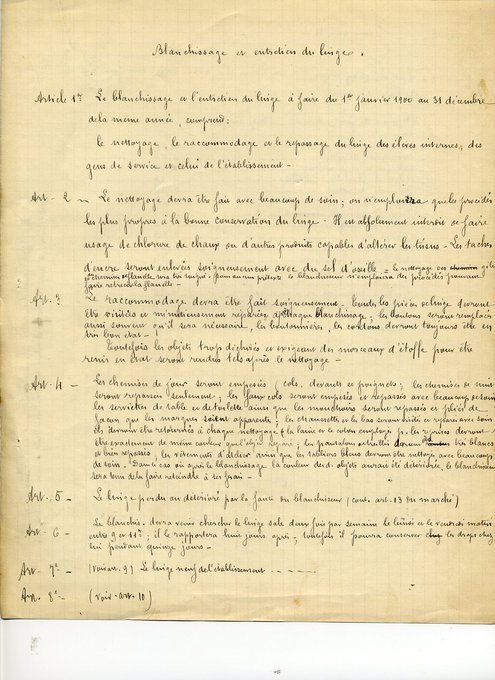 Blanchissage et entretien du linge.
Article 1er Le blanchissage et l'entretien du linge à faire du 1er Janvier 1900 au 31 décembre
de la même année comprend:
le nettoyage, le raccommodage et le repassage du linge des élèves internes, des
gens de service et celui de l'établissement -
Art - 2 - Le nettoyage devra être fait avec beaucoup de soin; on n'emploiera que les procédés
les plus propres à la bonne conservation du linge - Il est absolument interdit de faire
usage de chlorure de chaux ou d'autres produits capables d'altérer les tissus - Les taches
d'encre seront enlevées soigneusement avec du sel d'oseille - Le nettoyage des chemises gilets
de flanelle sous aucun prétexte le blanchisseur n'emploiera des procédés pouvant
faire rétrécir la flanelle -
Art. 3 Le raccommodage devra être fait soigneusement - Toutes les pièces de linge devront
être visitées et minutieusement réparées à chaque blanchissage; les boutons seront remplacés
aussi souvent qu'il sera nécessaire, les boutonnières, les cordons devront toujours être en
très bon état -
Toutefois les objets trop déchirés et exigeant des morceaux d'étoffe pour être
remis en état seront rendus tels après le nettoyage -
Art. 4 - Les chemises de jour seront empesées (cols, devants et poignets); les chemises de nuit
seront repassées seulement; les faux cols seront empesés et repassés avec beaucoup de soin
les serviettes de table et de toilette ainsi que les mouchoirs seront repassés et pliés de
façon que les marques soient apparentes; les chaussettes et les bas seront visités et reprisés avec soin
ils devront être retournés à chaque nettoyage & la laine et le coton employé p. les reprises devront
être exactement de même couleur que l'objet réparé; les pantalons de très blancs
et bien repassés; les vêtements d'été ainsi que les tabliers bleus devront être nettoyés avec beaucoup
de soin. Dans le cas où après le blanchissage la couleur des d. objets aurait été détériorée, le blanchisseur
sera tenu de la faire reteindre à ses frais -
Art - 5 - Le linge perdu ou détérioré par la faute du blanchisseur (cont. art. 13 du marché)
Art - 6 - Le blanchis. devra venir chercher le linge sale deux fois par semaine le lundi et le vendredi matin
entre 9 et 11h; il le rapportera huit jours après; toutefois il pourra conserver les draps chez
lui pendant quinze jours -
Art - 7e - (Voir art. 9) Le linge neuf de l'établissement - - - -
Art. 8e - (Voir - art. 10)